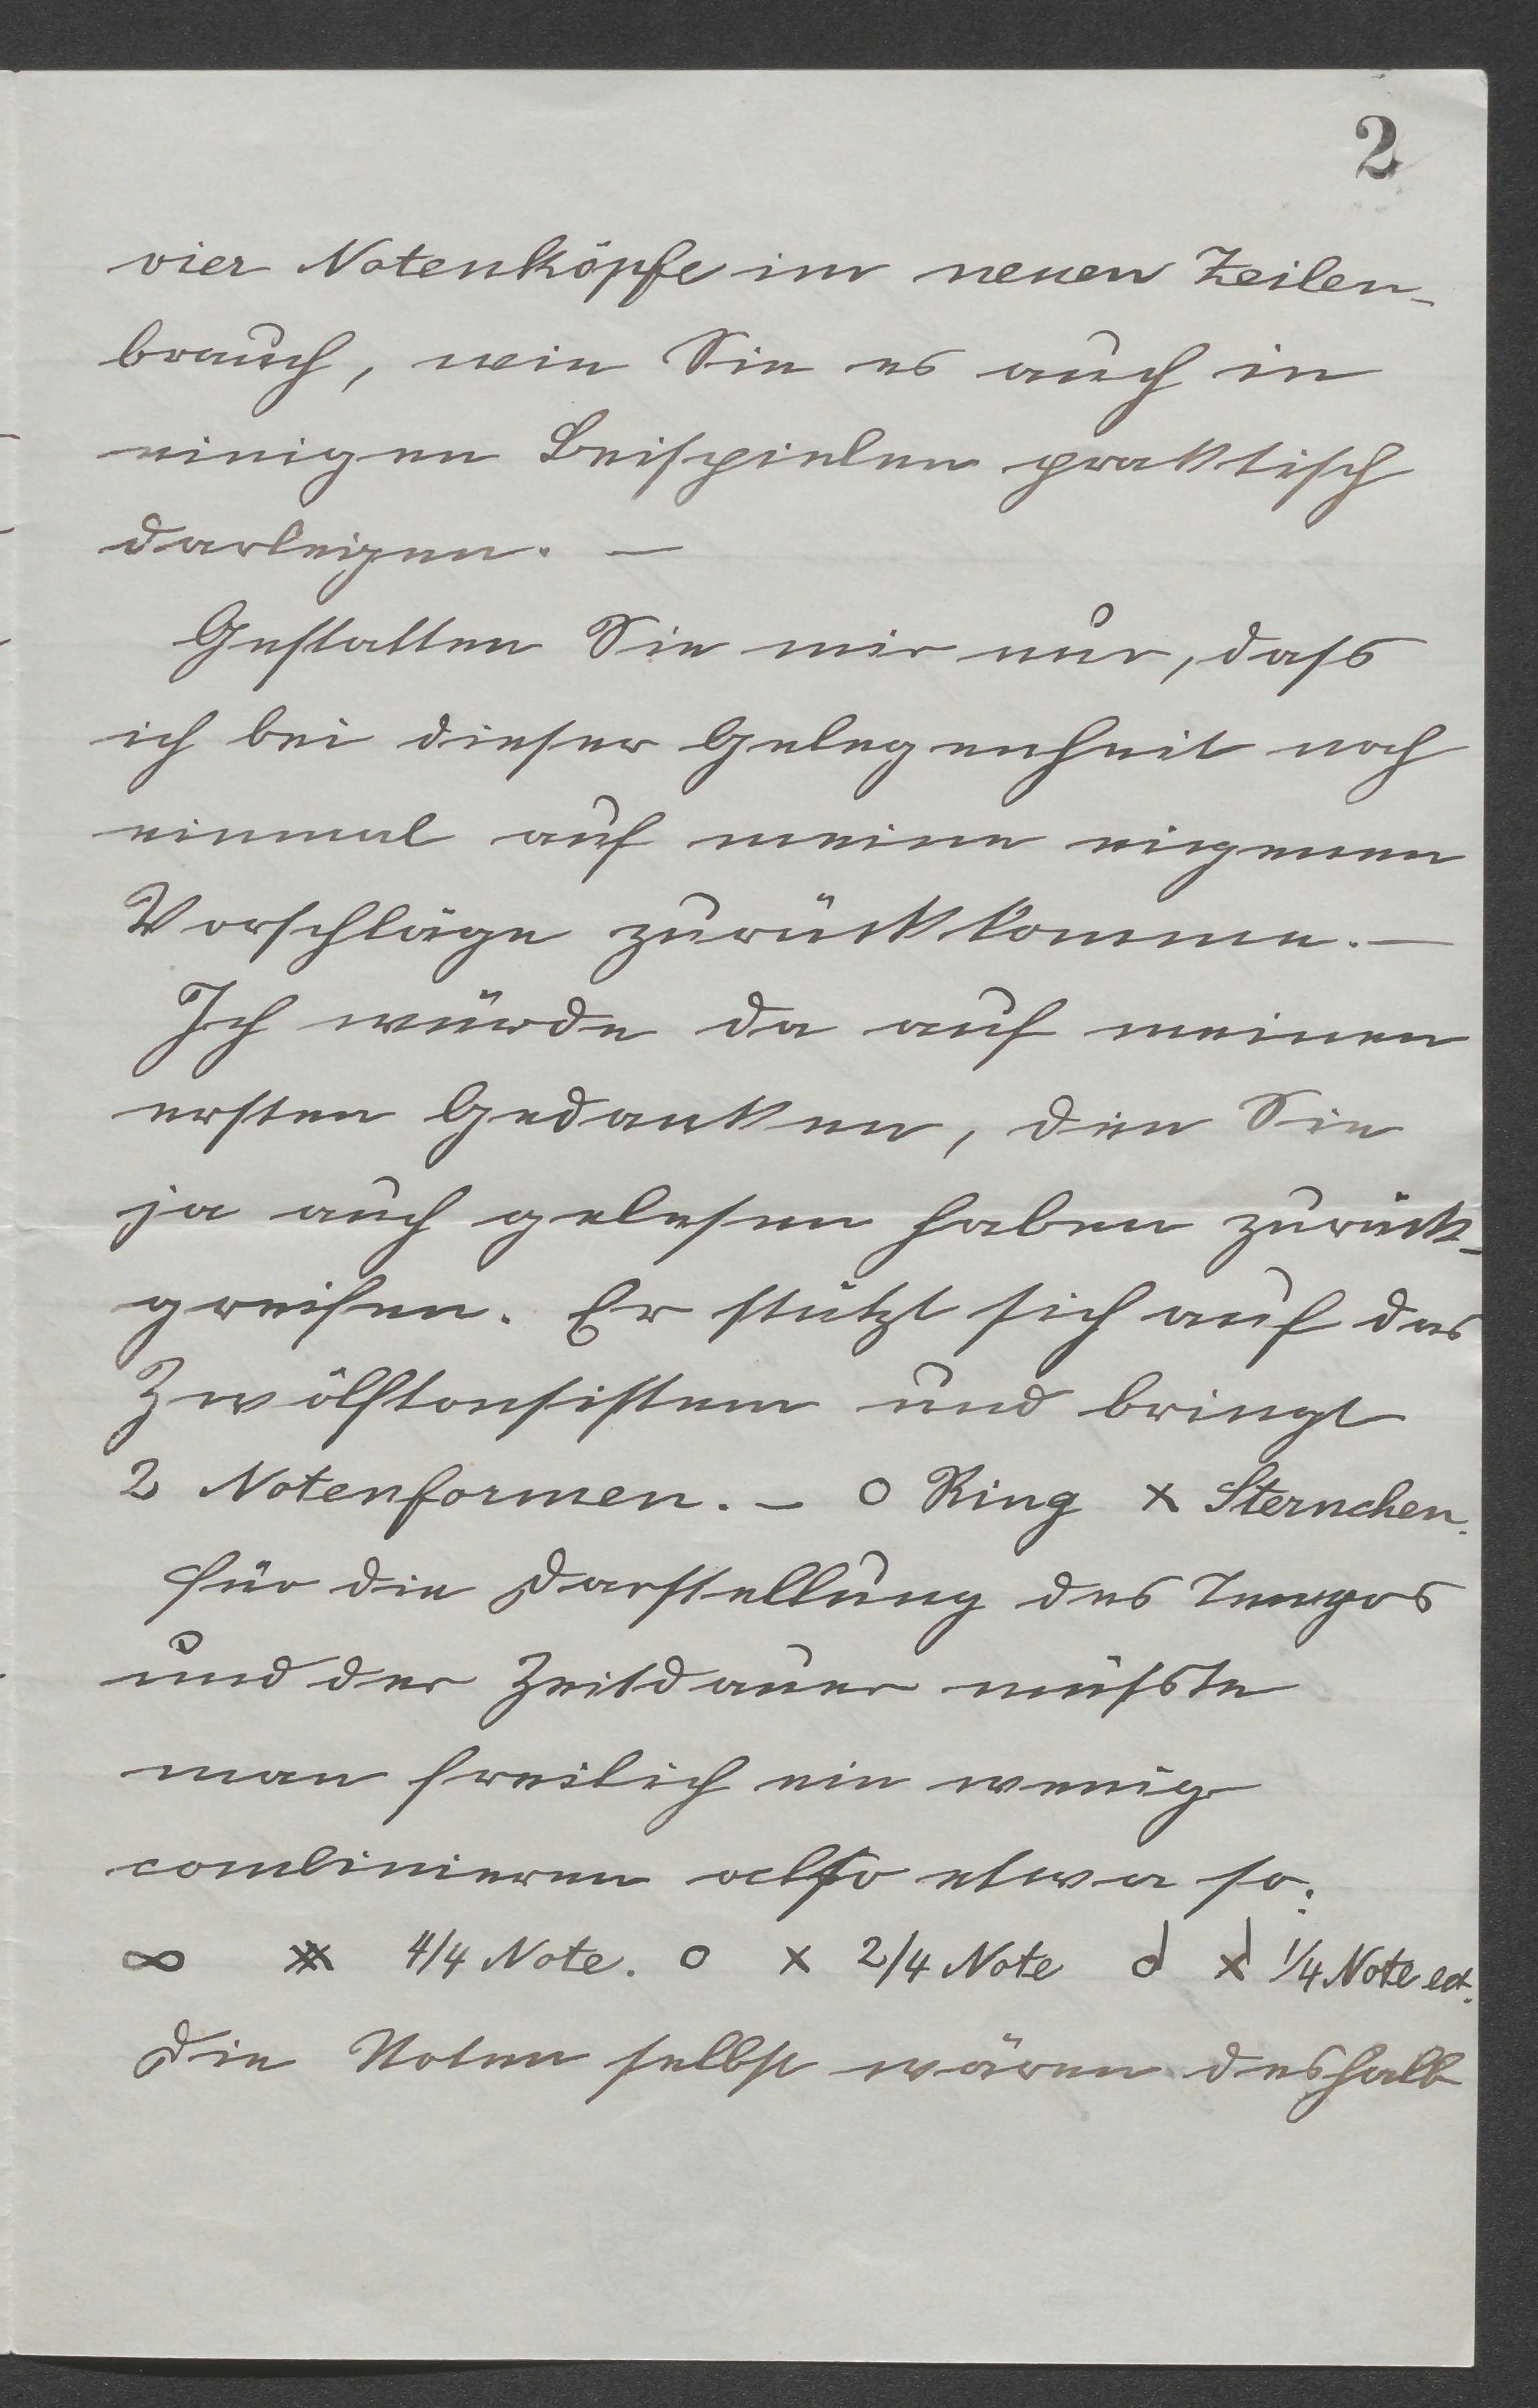 2
vier Notenköpfe im neuen Zeilen-
brauch, wie Sie es auch in
einigen Beispielen praktisch
darleigen. —
Gestatten Sie mir nur, dass
ich bei dieser Gelegenheit noch
einmal auf meine eigenen
Vorschläge zurückkomme. —
Ich würde da auf meinen
ersten Gedanken, den Sie
ja auch gelesen haben zurück-
greifen. Er stützt sich auf das
Zwölftonsistem und bringt
2 Notenformen. – o Ring x Sternchen.
für die Darstellung des Tempos
und der Zeitdauer müsste
man freilich ein wenig
combinieren also etwa so:
∞ xx 4/4 Note. o x 2/4 Note d x 1/4 Note ect.
Die Noten selbst wären deshalb